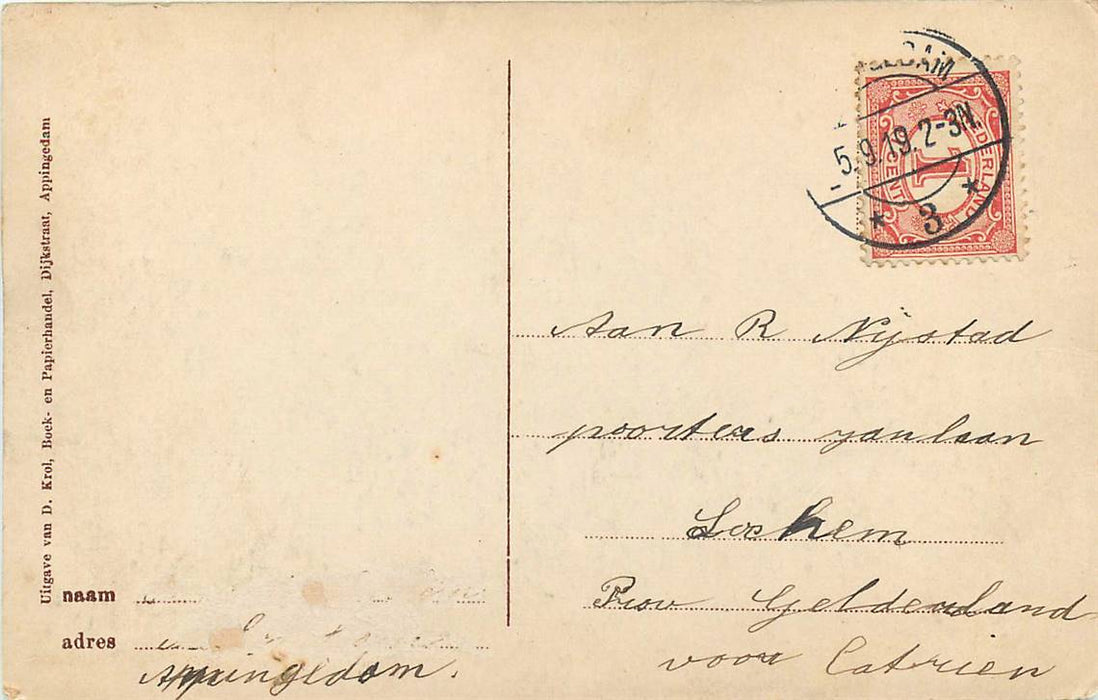 Uitgave van D. Krol, Boek- en Papierhandel, Dijkstraat, Appingedam
naam
adres
Appingedam.
GEDAM
5.9.19. 2-3N.
3
NEDERLAND
1
CENT
Aan R Nijstad
poorters
Lochem
Prov Gelderland
voor Catrien